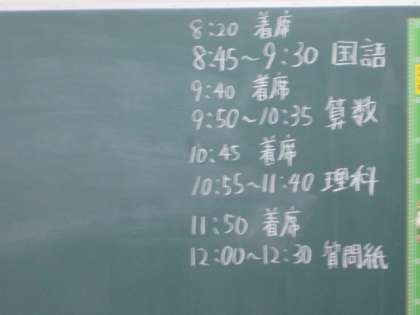 8:20 着席
8:45~9:30 国語
9:40 着席
9:50~10:35 算数
10:45 着席
10:55~11:40 理科
11:50 着席
12:00~12:30 質問紙